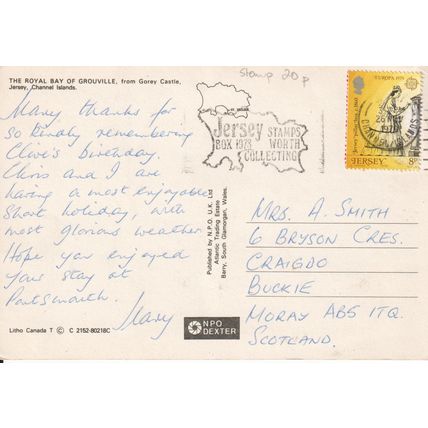 stamp 20p
THE ROYAL BAY OF GROUVILLE, from Gorey Castle,
Jersey, Channel Islands.
Many thanks for
so kindly remembering
Clive's birthday.
and I are
having a most enjoyable
short holiday, with
most glorious weather
Hope you enjoyed
your stay at
Portsmouth.
Mary
Litho Canada T © C 2152-80218C
Published by N.P.O. U.K. Ltd
Atlantic Trading Estate
Barry, South Glamorgan, Wales.
NPO
DEXTER
Jersey STAMPS
BOX WORTH
COLLECTING
EUROPA 1979
JERSEY 8p
CHANNEL ISLANDS
MRS. A. SMITH
6 BRYSON CRES.
CRAIGDO
BUCKIE
MORAY AB5 1TQ.
SCOTLAND.